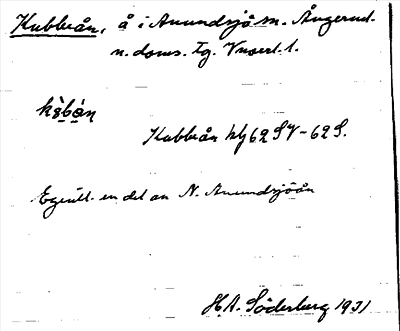 Kubbeån, å i Anundsjö sn. Ångerml.
n. doms. Tg.
Kubbeån hbj 62 SV - 62 S.
Egentl. en del av N. Anundsjöån
H.A. Söderberg 1931